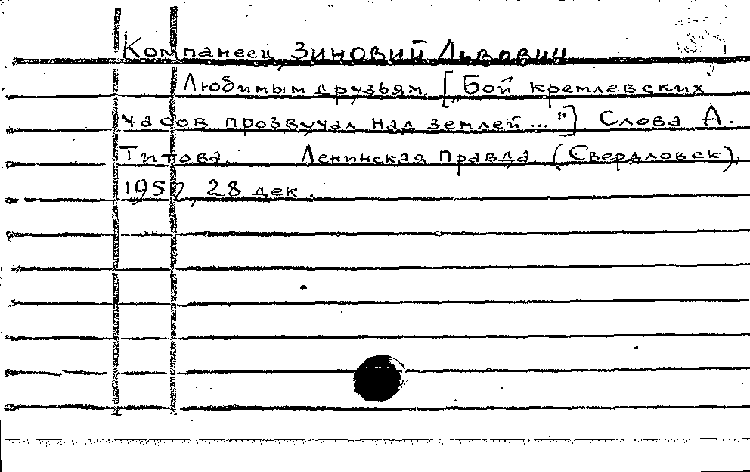 Компанеец, Зиновий Львович
Любимым друзьям [Бой кремлевских
часов прозвучал над землей..."] Слова А.
Титова. Ленинская правда (Свердловск),
28 дек.